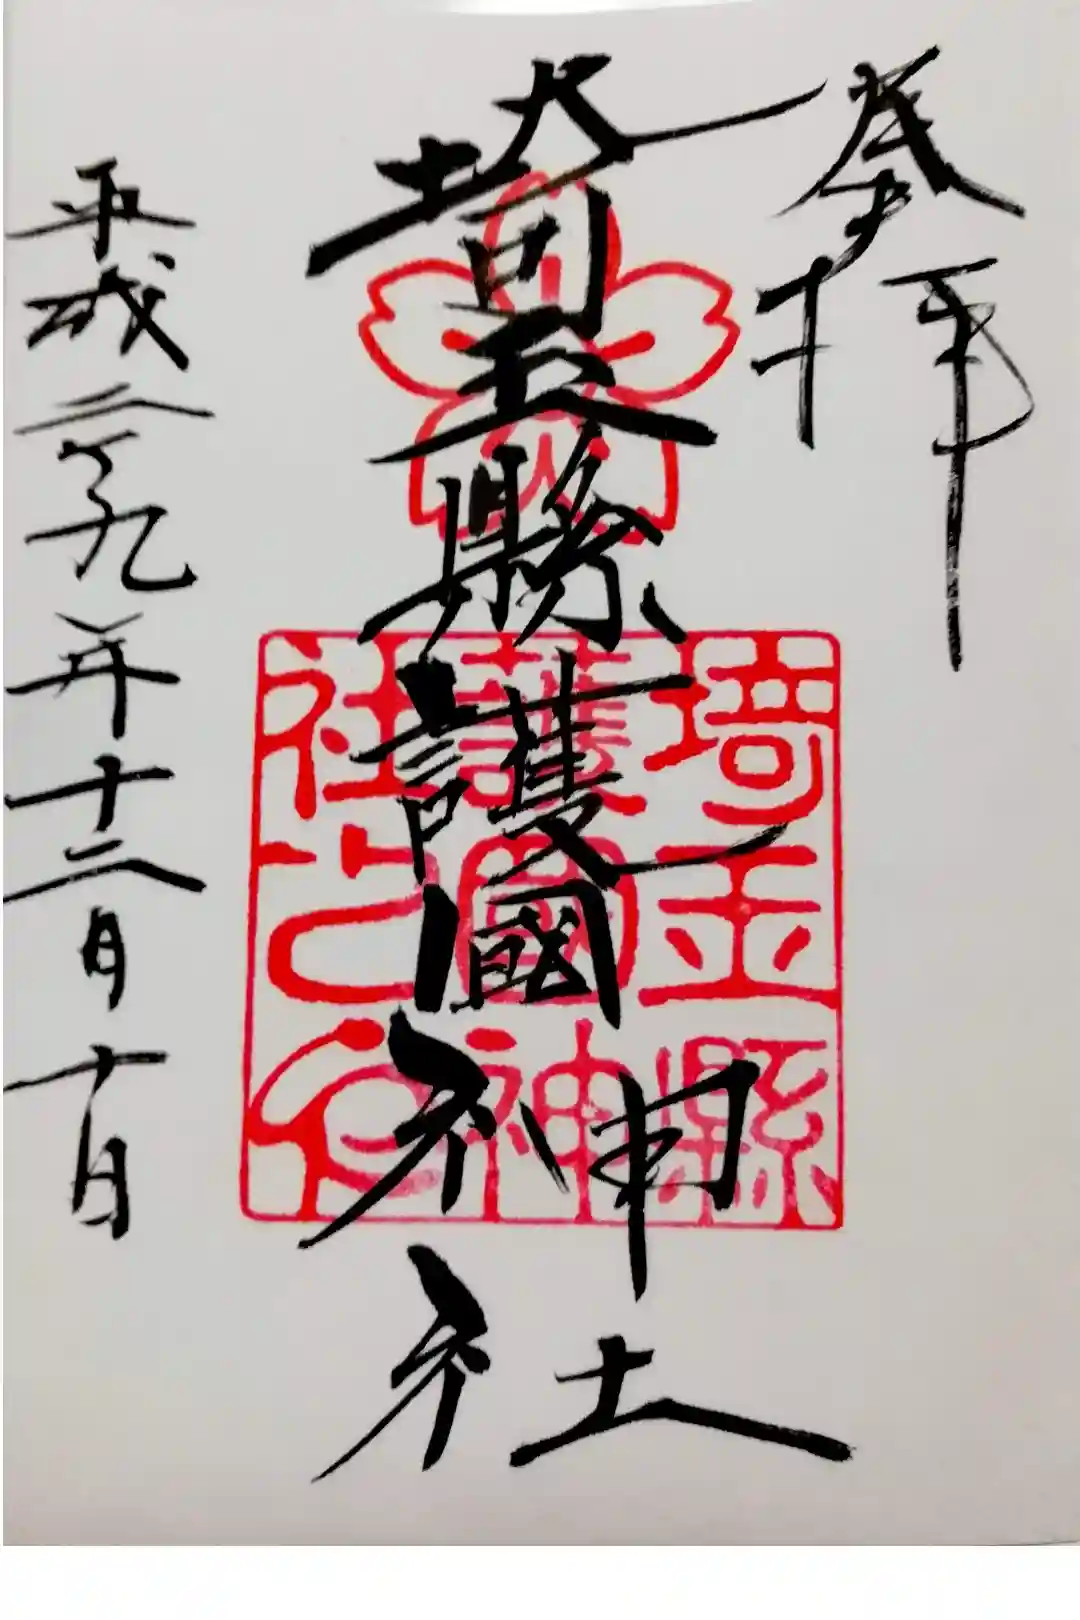 奉拝
埼玉縣護國神社
埼玉縣
護國神
社之印
平成二十九年十二月十日